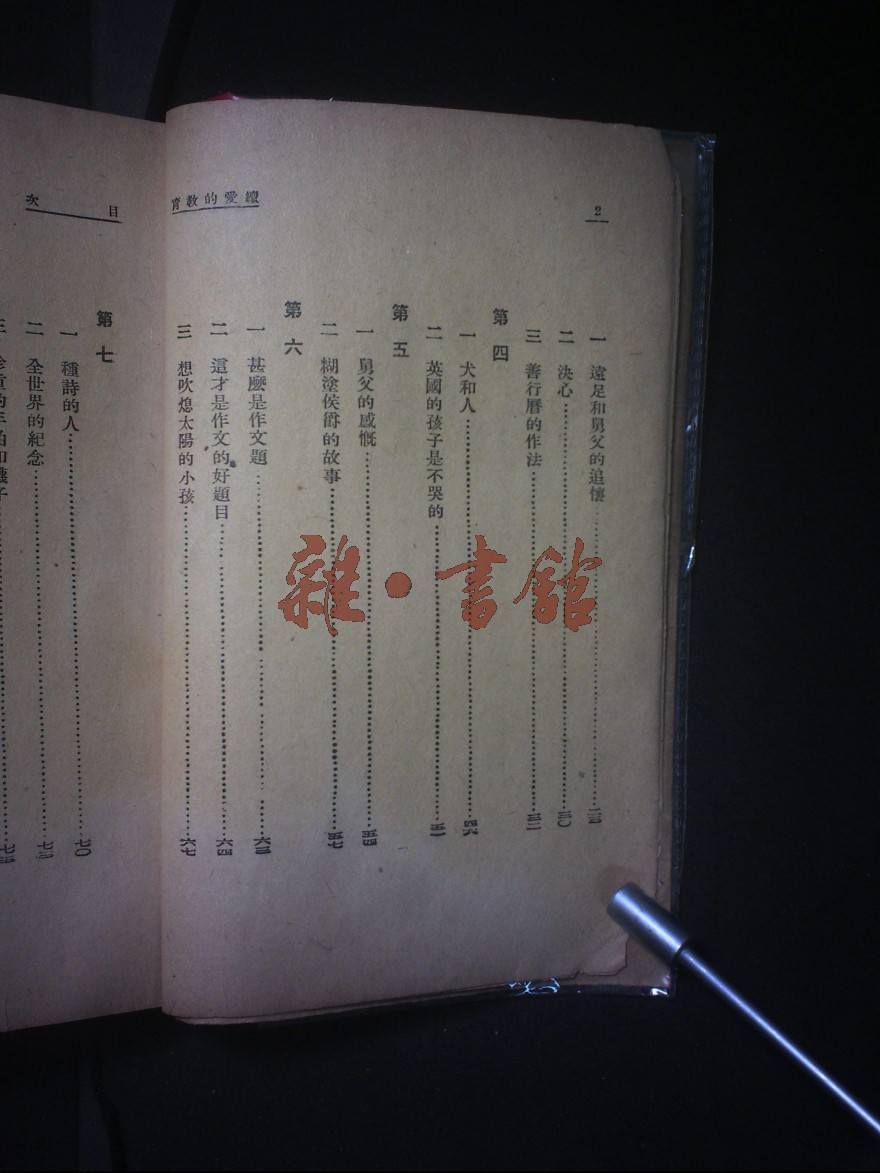 2
續愛的教育
一 遠足和舅父的追懷
二 決心 三〇
三 善行曆的作法 三二
第四
一 犬和人 四六
二 英國的孩子是不哭的 五一
第五
一 舅父的感慨 五四
二 糊塗侯爵的故事 五七
第六
一 甚麽是作文題 六三
二 這才是作文的好題目 六四
三 想吹熄太陽的小孩 六七
目次
第七
一 種詩的人 七〇
二 全世界的紀念 七三
三
雜·書館